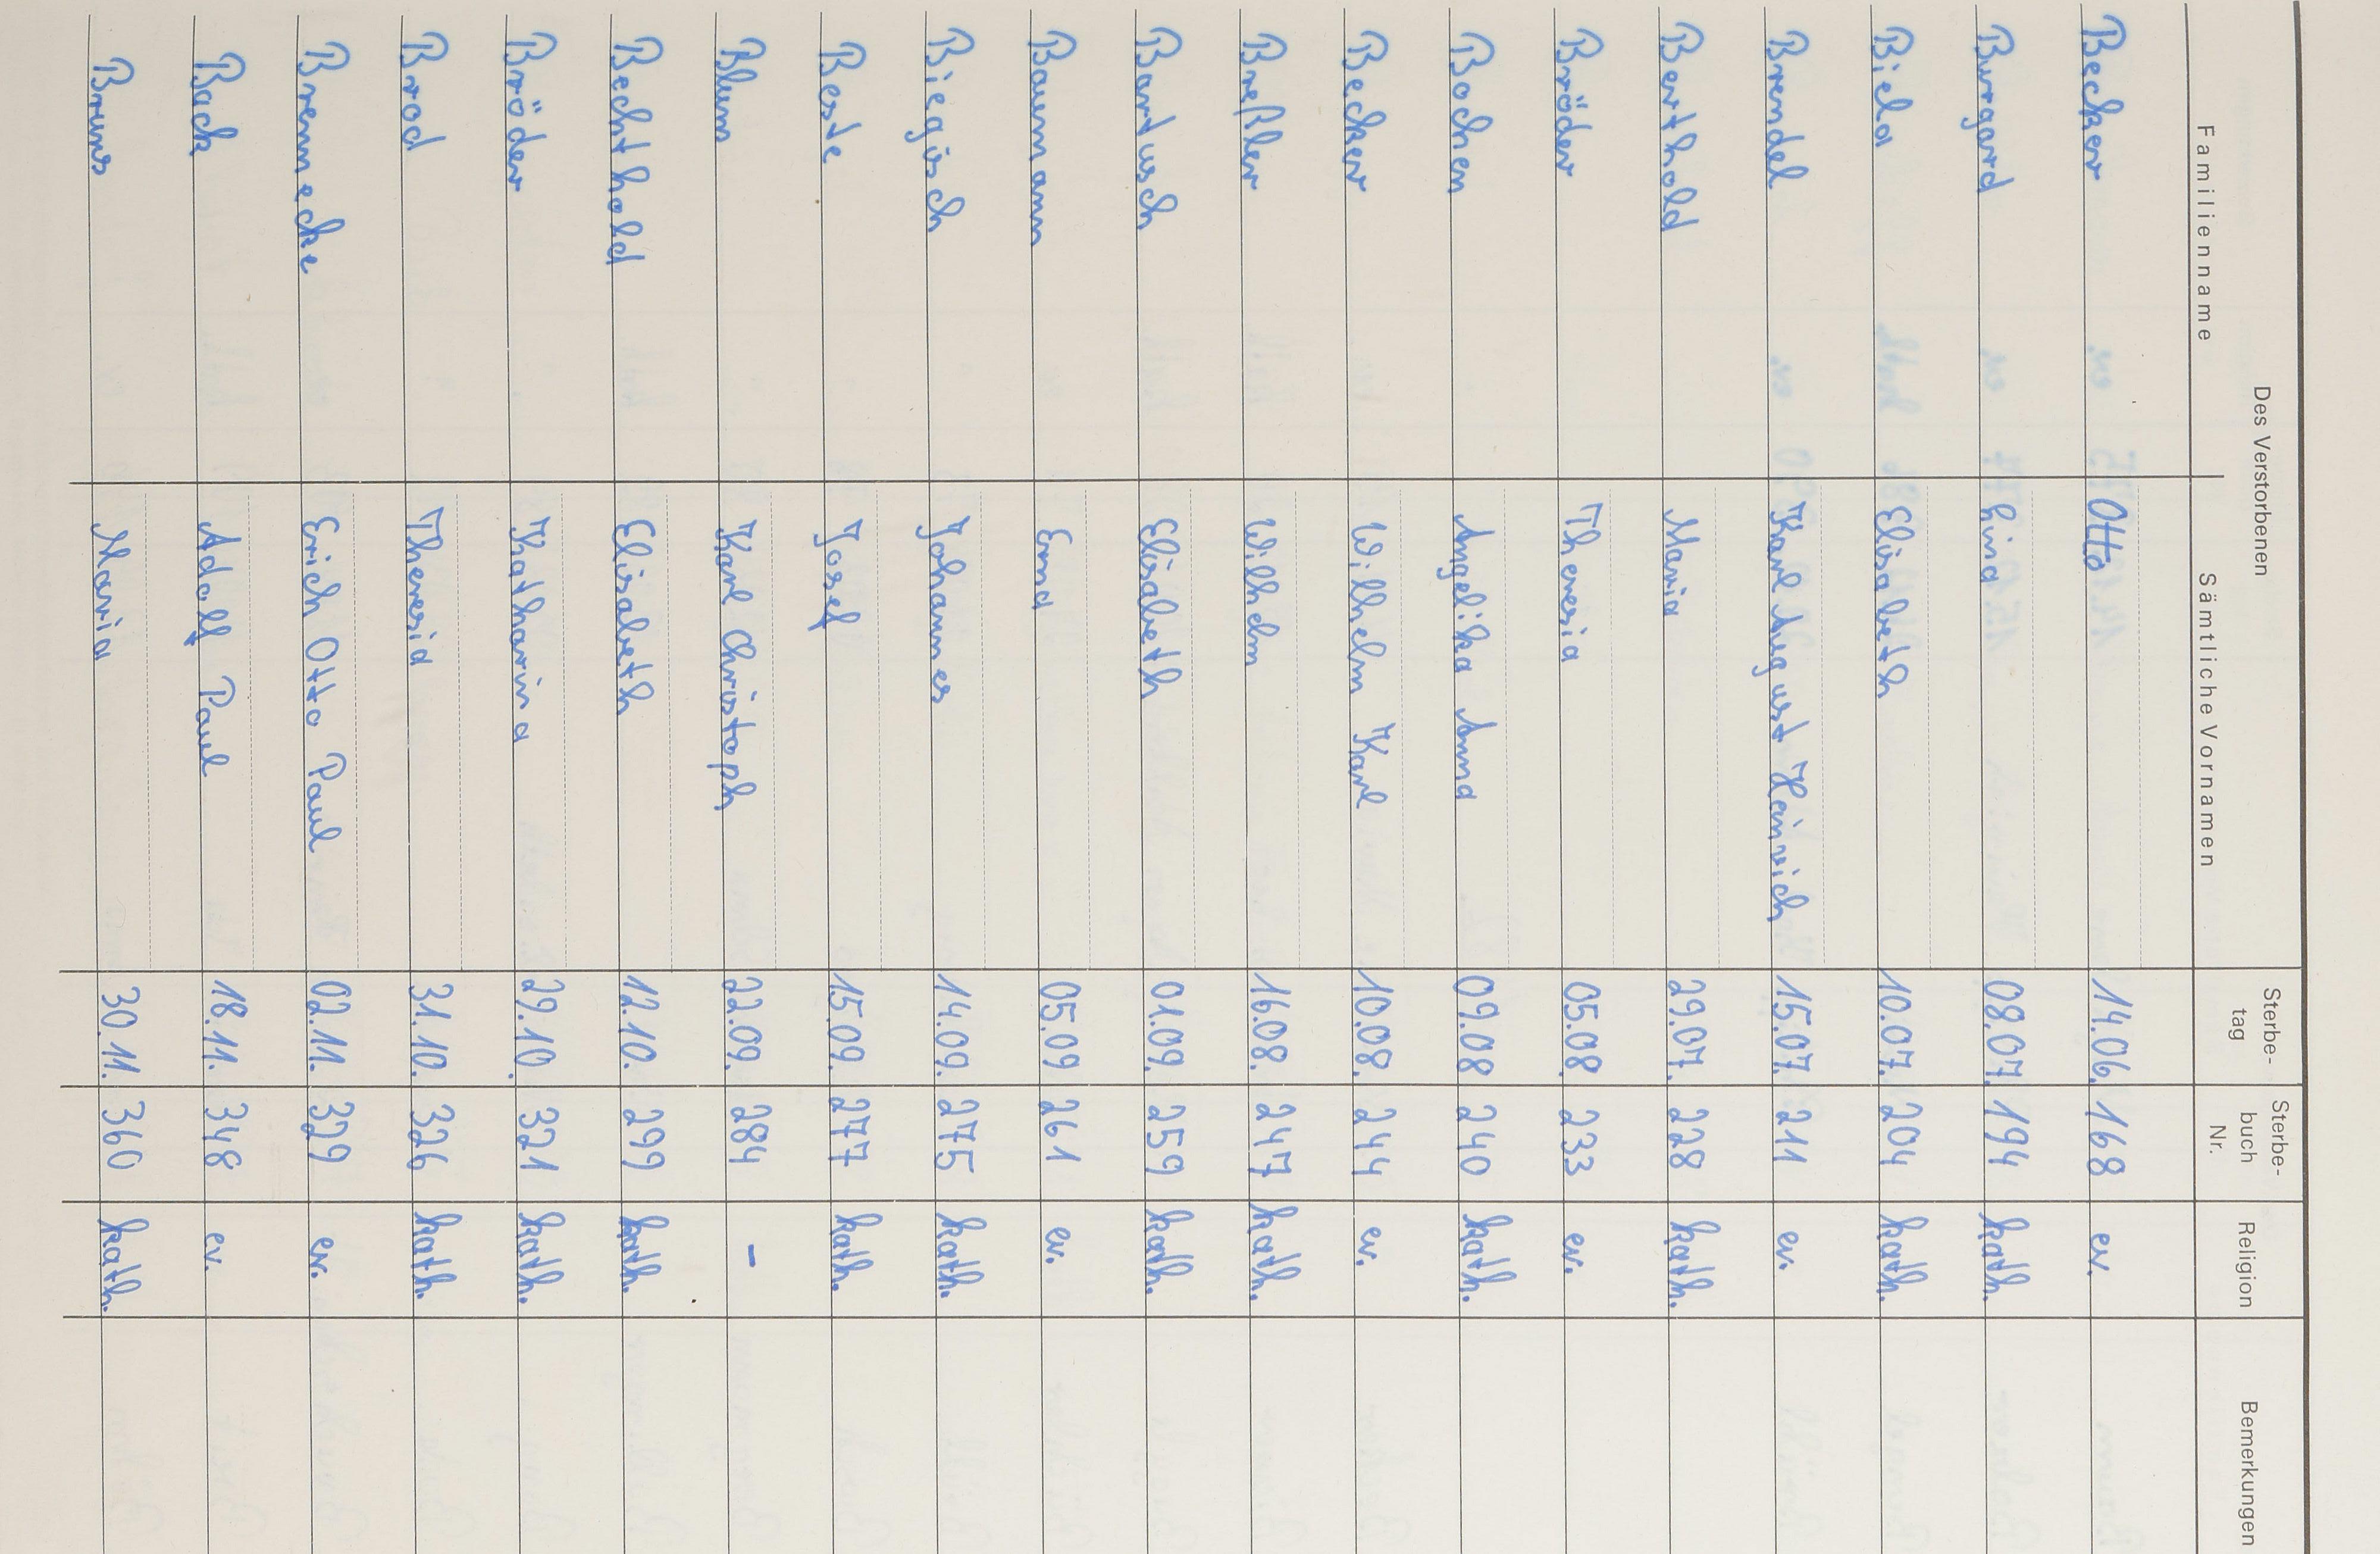 Des Verstorbenen
Familienname Sämtliche Vornamen Sterbe- tag Sterbe- buch Nr. Religion Bemerkungen
Becker Otto 14.06. 168 ev.
Burgard Rina 08.07. 194 kath.
Biela Elisabeth 10.07. 204 kath.
Brendel Karl August Heinrich 15.07. 211 ev.
Berthold Maria 29.07. 228 kath.
Bröder Theresia 05.08. 233 ev.
Bochen Angelika Anna 09.08 240 kath.
Becker Wilhelm Karl 10.08. 244 ev.
Breßler Wilhelm 16.08. 247 kath.
Bartusch Elisabeth 01.09. 259 kath.
Baumann Erna 05.09 261 ev.
Biegisch Johannes 14.09. 275 kath.
Beste Josef 15.09. 277 kath.
Blum Karl Christoph 22.09. 284 -
Bechthold Elisabeth 12.10. 299 kath.
Bröder Katharina 29.10. 321 kath.
Brod Theresia 31.10. 326 kath.
Brennecke Erich Otto Paul 02.11. 329 ev.
Back Adolf Paul 18.11. 348 ev.
Bruns Maria 30.11. 360 kath.